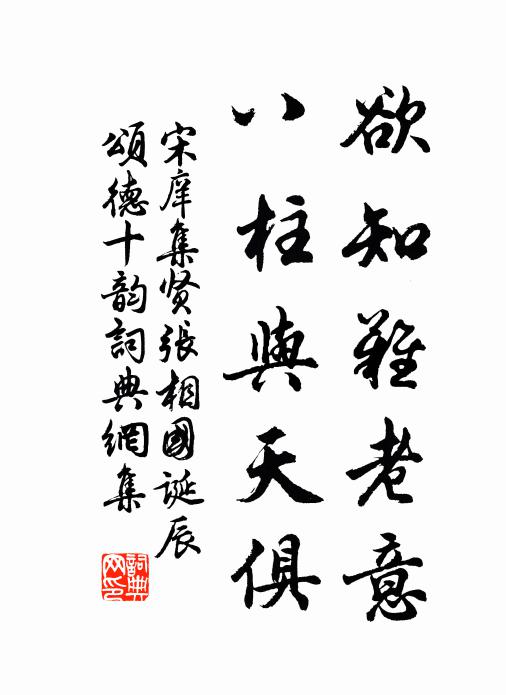 欲知難老意
八柱與天俱
宋庠集贤張相國誕辰
頌德十韵詞典網集
詞典网印